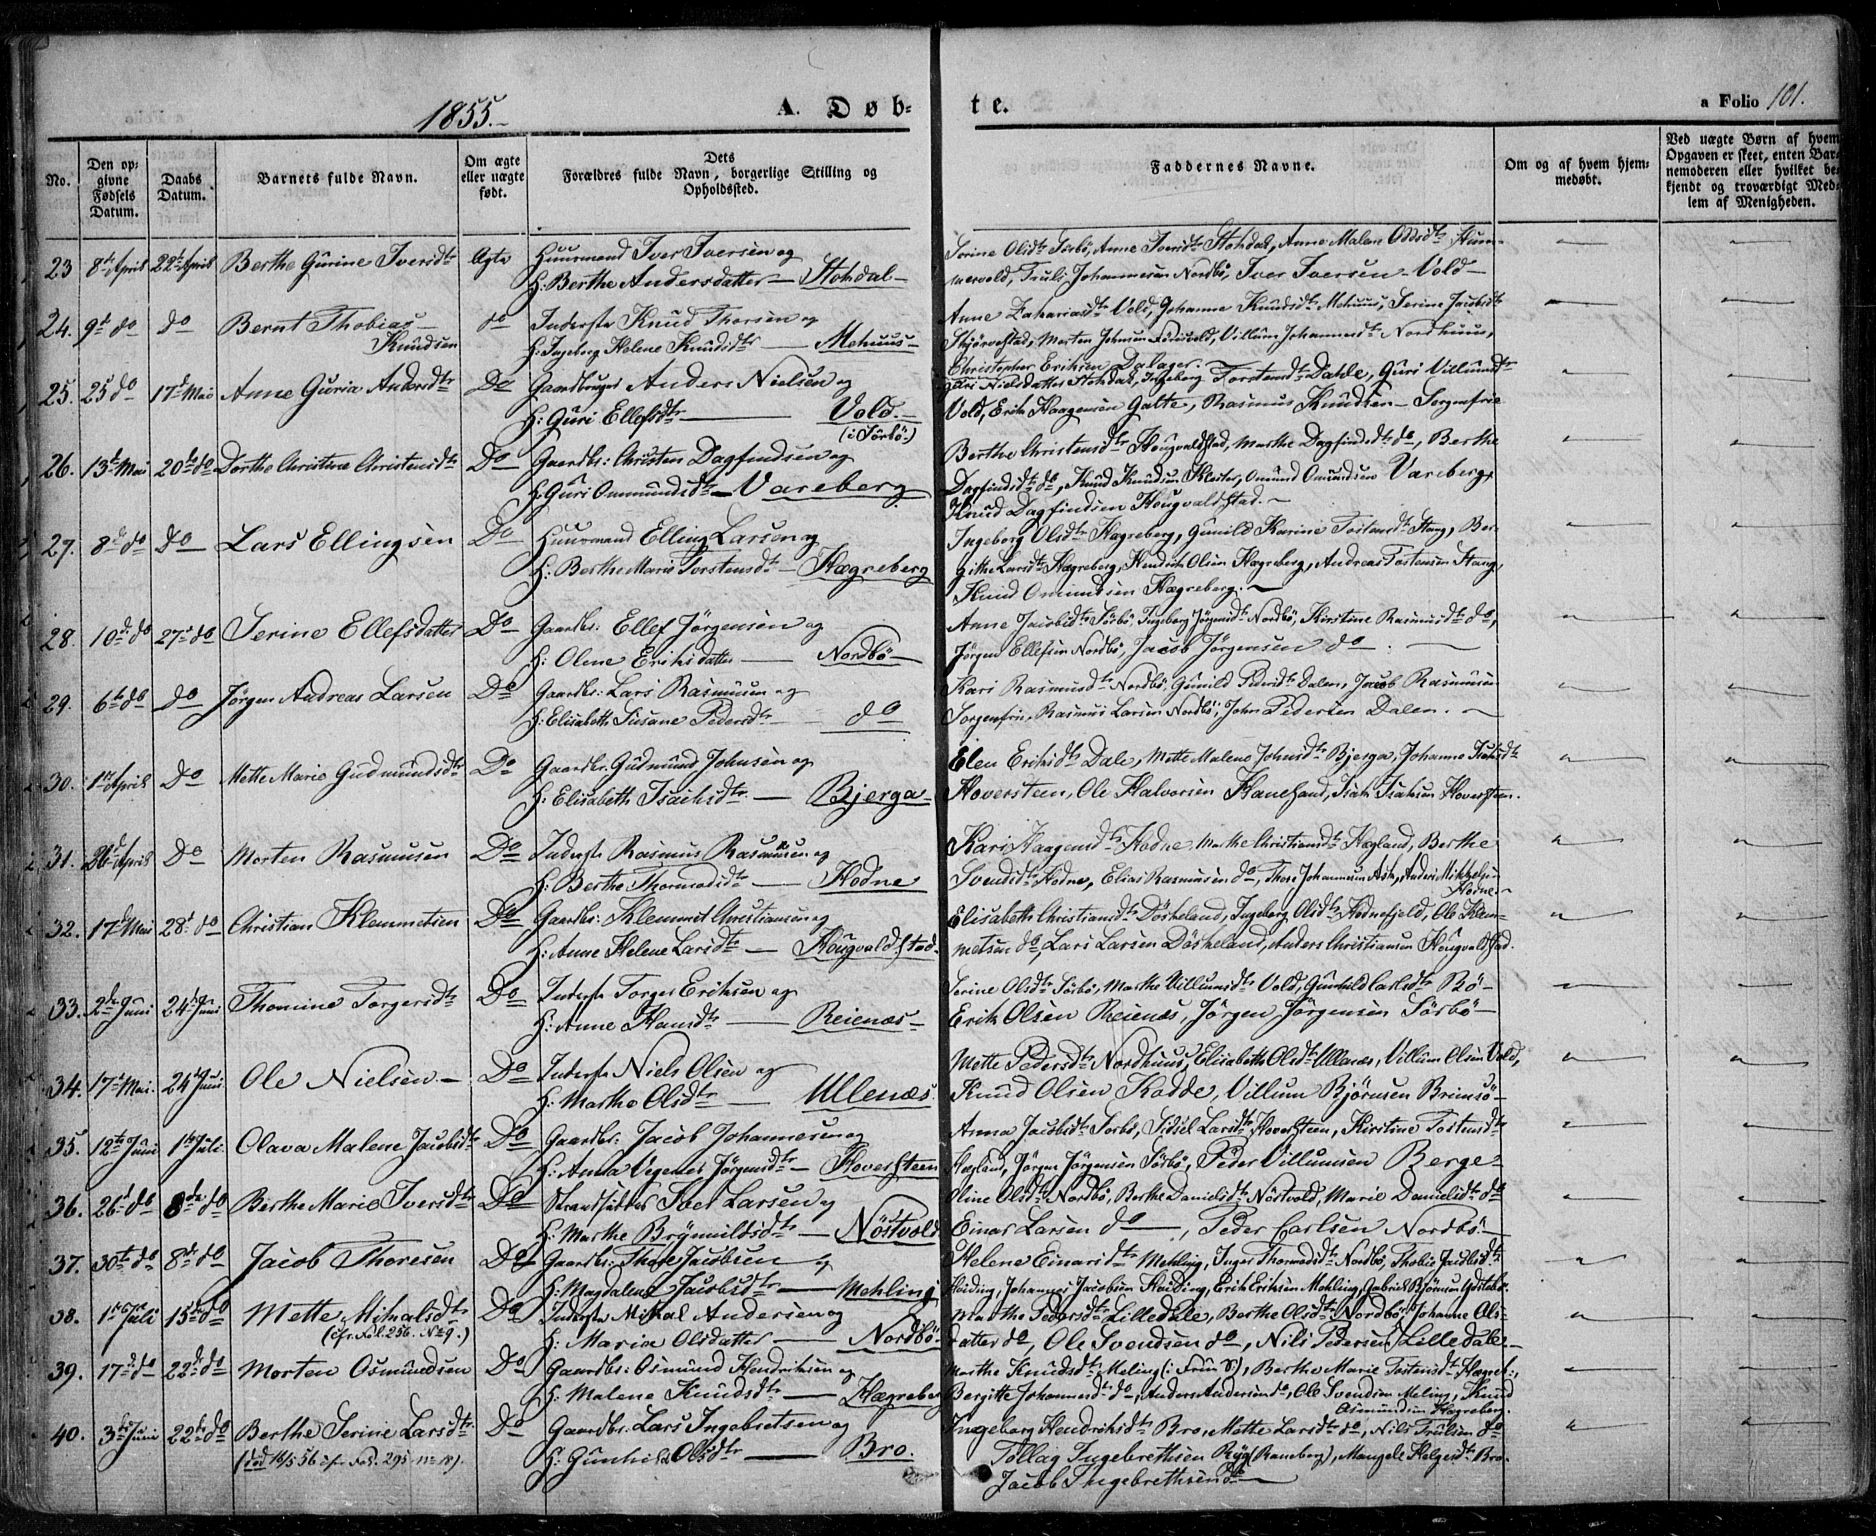 1855.
A. Døb-
te.
a Folio 101.
No.
Den op-
givne
Fødsels
Datum.
Daabs
Datum.
Barnets fulde Navn.
Om ægte
eller uægte
født.
Dets
Forældres fulde Navn, borgerlige Stilling og
Opholdssted.
Faddernes Navne.
Om og af hvem hjem-
medøbt.
Ved uægte Børn af hvem
Opgaven er skeet, enten Bar-
nemoderen eller hvilket be-
kjendt og troværdigt Med-
lem af Menigheden.
23 8de April 22de April Berthe Gurine Iversdtr Ægte Huusmand Iver Iversen og
H: Berthe Andersdatter Stohdal
Serine Olsdtr Sørbø, Anne Iversdtr Stohdal, Anne Malene
Truls Johannesen Nordbø, Iver Iversen Vold
24. 9de do do Bernt Thobias do Inderste Knud Thorsen og
Knudsen H: Ingeborg Helene Knudsdtr Mehuus
Anne Zachariasdtr Vold, Johanne Knudsdtr Mehuus, Serine Jacobsdtr
Morten Johnsen Villum Johannesdtr Nordhuus,
Christopher Eriksen Dalager.
25. 25 do 17de Mai Anne Guria Andersdtr Do Gaardbruger Anders Nielsen og
H: Guri Ellefsdtr Vold.
(i Sørbø.)
Guri Nielsdatter Stohdal, Ingeborg Torstensdtr Dahle, Guri Villumsdtr
Vold, Erik Haagensen Galte, Rasmus Knudsen Sorgenfrie
26. 13de Mai 20de do Dorthe Christine Christensdtr Do Gaardbr: Christen Dagfindsen og
H: Guri Ommundsdtr Vareberg
Berthe Christensdtr Hougvaldstad, Marthe Dagfindsdtr do, Berthe
Dagfindsdtr do, Knud Knudsen Kloster, Omund Omundsen Vareberg,
Knud Dagfindsen Hougvaldstad.
27. 8de do Do Lars Ellingsen Do Huusmand Elling Larsen og
H: Berthe Marie Torstensdtr Hægreberg
Ingeborg Olsdtr Hægreberg, Gunild Karine Tostensdtr Stang, Ber-
githe Larsdtr Hægreberg, Hendrich Olsen Hægreberg, Andreas Tostensen Stang,
Knud Omundsen Hægreberg.
28. 10de do 27de do Serine Ellefsdatter Do Gaardbr: Ellef Jørgensen og
H: Olene Eriksdatter Nordbø
Anne Jacobsdtr Sørbø, Ingeborg Jørgensdtr Nordbø, Kirstine Rasmusdtr do,
Jørgen Ellefsen Nordbø, Jacob Jørgensen do.
29. 6te do do Jørgen Andreas Larsen Do Gaardbr: Lars Rasmusen og
H: Elisabeth Susane Pedersdtr do
Kari Rasmusdtr Nordbø, Gunild Pedersdtr Dalen, Jacob Rasmusen
Sorgenfri, Rasmus Larsen Nordbø, John Pedersen Dalen.
30. 1ste April Do Mette Marie Gudmundsdtr Do Gaardbr. Gudmund Johnsen og
H: Elisabeth Isachsdtr Bjerga
Elen Eriksdtr Dale, Mette Malene Johnsdtr Bjerga, Johanne Isaksdtr
Hoversteen, Ole Halvorsen Hanesand, Isak Isaksen Hoversteen.
31. 26de April Do Morten Rasmusen Do Inderste Rasmus Rasmusen og
H: Berthe Thormodsdtr Hodne
Kari Haagensdtr Hodne, Marthe Christiansdtr Hægland, Berthe
Svendsdtr Hodne, Elias Rasmusen do, Thore Johannesen Ask, Anders Mikkelsen
Hodne.
32. 17de Mai 28de do Christian Klemmetsen Do Gaardbr: Klemmet Christiansen og
H: Anne Helene Larsdtr Hougvaldstad
Elisabeth Christiansdtr Døskeland, Ingeborg Olsdtr Hodnefjeld, Ole Klem-
metsen do, Lars Larsen Døskeland, Anders Christiansen Hougvaldstad.
33. 2den Juni 24de Juni Thomine Torgersdtr Do Inderste Torger Eriksen og
H: Anne Hansdtr Reienæs
Serine Olsdtr Sørbø, Marthe Villumsdtr Vold, Gunhild Carlsdtr Bø
Erik Olsen Reienæs, Jørgen Jørgensen Sørbø
34. 17de Mai. 24de Juni Ole Nielsen Do Inderste Niels Olsen og
H: Marthe Olsdtr Ullenæs
Mette Pedersdtr Nordhuus, Elisabeth Olsdtr Ullenæs, Villum Olsen Vold,
Knud Olsen Todde, Villum Bjørnsen Brimsø
35. 12te Juni 1ste Juli Olava Malene Jacobsdtr Do Gaardbr: Jacob Johannesen og
H: Anna Jørgensdtr Hoversteen
Anna Jacobsdtr Sørbø, Sidsel Larsdtr Hoversteen, Kirstine Tostensdtr
Hægland, Jørgen Jørgensen Sørbø, Peder Villumsen Berge
36. 26de do 8de do Berthe Marie Iversdtr Do Strandsidder Iver Larsen og
H: Marthe Brynnildsdtr Nøstvold
Oline Olsdtr Nordbø, Berthe Danielsdtr Nøstvold, Marie Danielsdtr do
Einar Larsen do, Peder Carlsen Nordbø
37. 30te do 8de do Jacob Thoresen Do Gaardbr: Thore Jacobsen og
H: Magdalene Jacobsdtr Mehling
Helene Einarsdtr Mehling, Inger Thormodsdtr Nordbø, Thobie Jacobsdtr
Heiding, Johannes Jacobsen Heiding, Erik Eriksen Mehling, Gabriel Bjørnsen
38. 1ste Juli 15de do Mette Mikalsdtr Do Inderste Mikal Andersen og
(cfr. Fol. 256. No 9.) H: Maria Olsdatter Nordbø
Marthe Pedersdtr Lilledale, Berthe Olsdtr Nordbø, Johanne Ols-
datter do, Ole Svendsen do, Nils Pedersen Lilledale.
39. 17de do 22de do Morten Osmundsen Do Gaardbr: Osmund Hendriksen og
H: Malene Knudsdtr Hægreberg
Marthe Knudsdtr Meling, Berthe Marie Tostensdtr Hægreb.,
Bergitte Johannesdtr do, Anders Andersen do, Ole Svendsen Meling, Knud
Osmundsen Hægreberg.
40. 3de Juni 22de do Berthe Serine Larsdtr Do Gaardbr: Lars Ingebretsen og
(død 16/5 56 cfr. Fol. 295 No 18). H: Gunhild Olsdtr Bro.
Ingeborg Hendriksdtr Bro, Mette Larsdtr do, Nils Trulsen do
Tollag Ingebrethsen Ryg (Ramberg), Helgesdtr Bro.
Jacob Ingebrethsen do